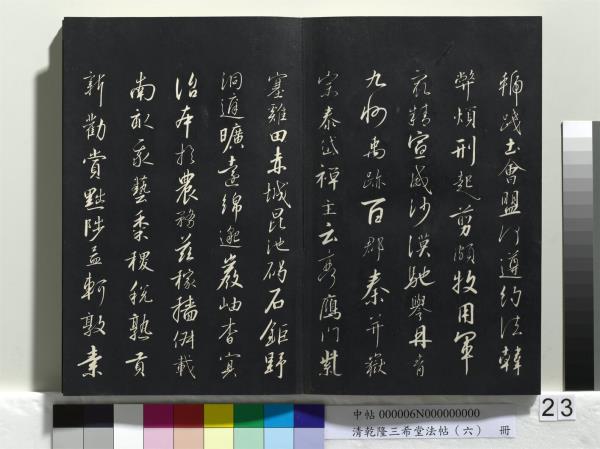 虢踐土會盟何遵約法韓
弊煩刑起翦頗牧用軍
最精宣威沙漠馳譽丹青
九州禹跡百郡秦并嶽
宗泰岱禪主云亭鴈門紫
塞雞田赤城昆池碣石鉅野
洞庭曠遠綿邈巖岫杳冥
治本於農務茲稼穡俶載
南畝我藝黍稷稅熟貢
新勸賞黜陟孟軻敦素
中帖 000006N000000000
清乾隆三希堂法帖(六) 冊
23